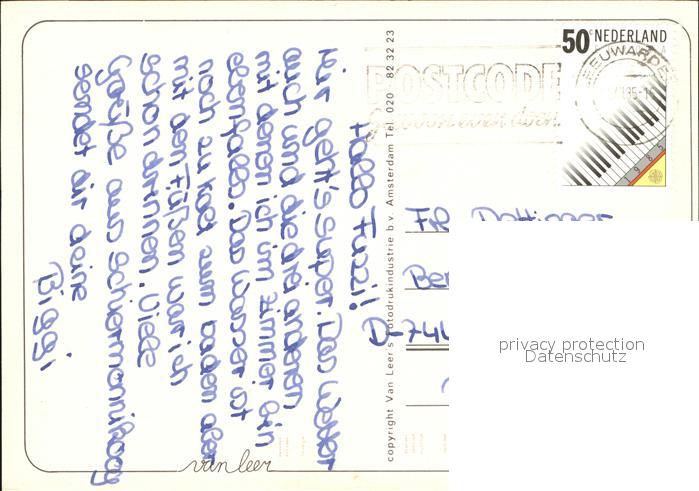 Hallo Fuzzi!
Mir geht's super. Das Wetter
auch und die drei anderen
mit denen ich im Zimmer bin
ebenfalls. Das Wasser ist
noch zu kalt zum baden aber
mit den Füßen war ich
schon drinnen. Viele
Grüße aus Schiermonnikoog
sendet dir deine
Biggi
copyright Van Leer's Fotodrukindustrie b.v. Amsterdam Tel. 020 82 32 23
van leer
50 c NEDERLAND
1985
POSTCODE
LEEUWARDEN
D-74
privacy protection
Datenschutz